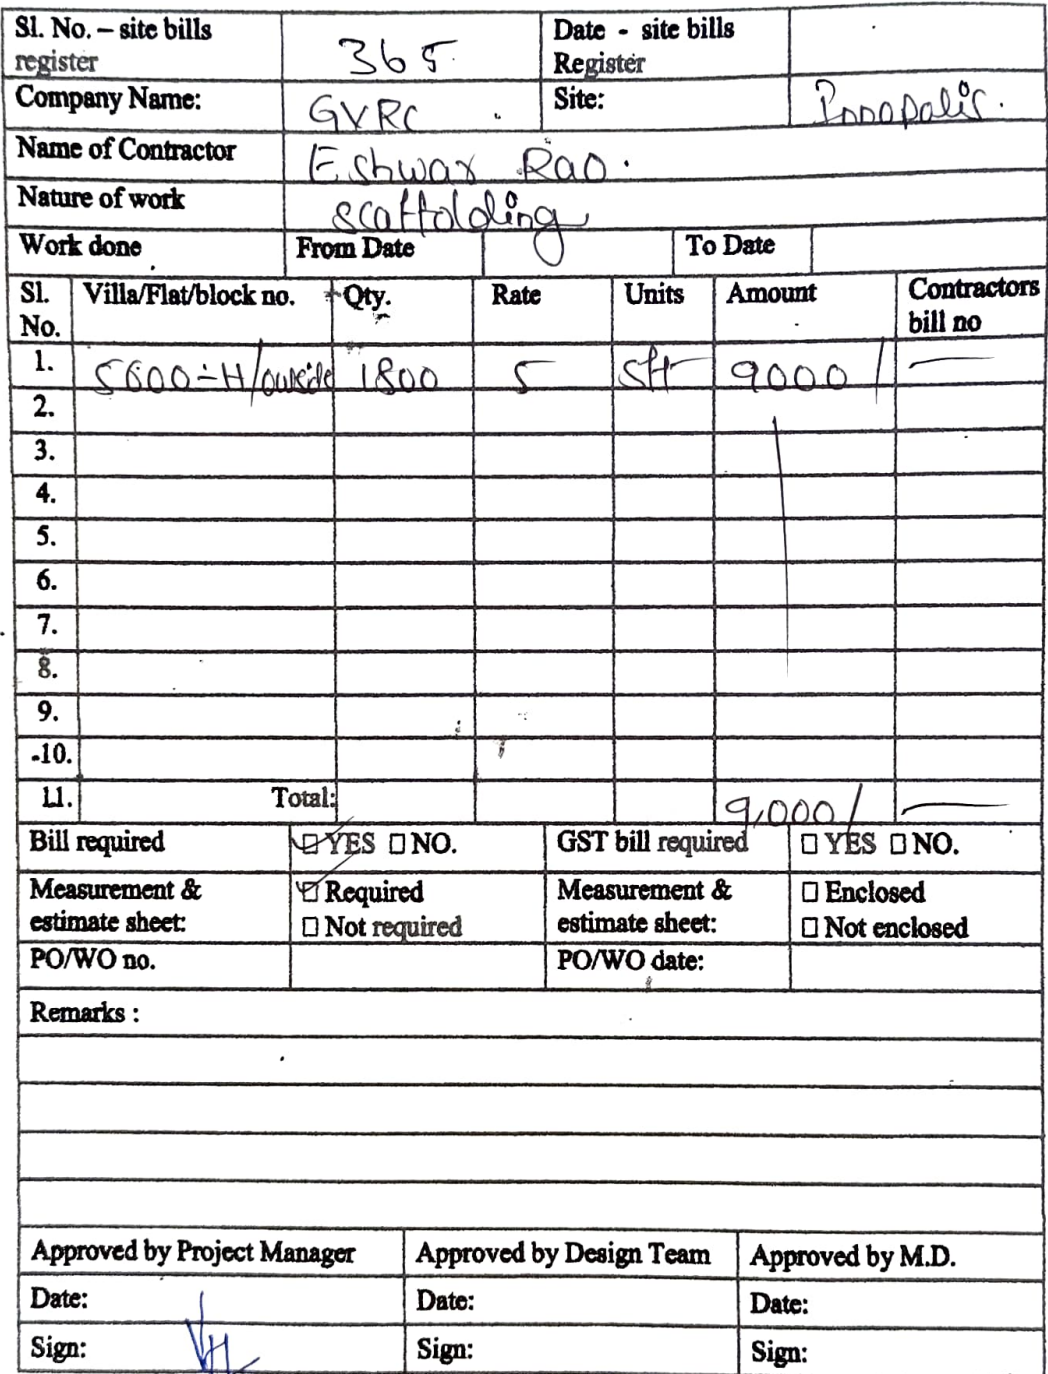 Sl. No. – site bills register 365 Date - site bills Register
Company Name: GVRC Site: Innopolis.
Name of Contractor Eshwar Rao.
Nature of work scaffolding
Work done From Date To Date
Sl. No. Villa/Flat/block no. Qty. Rate Units Amount Contractors bill no
1. 5600-H/outside 1800 5 Sft 9000/ —
2.
3.
4.
5.
6.
7.
8.
9.
10.
11. Total: 9,000/ —
Bill required ☑ YES ☐ NO. GST bill required ☐ YES ☐ NO.
Measurement & estimate sheet: ☑ Required ☐ Not required Measurement & estimate sheet: ☐ Enclosed ☐ Not enclosed
PO/WO no. PO/WO date:
Remarks :
Approved by Project Manager Approved by Design Team Approved by M.D.
Date: Date: Date:
Sign: Sign: Sign: